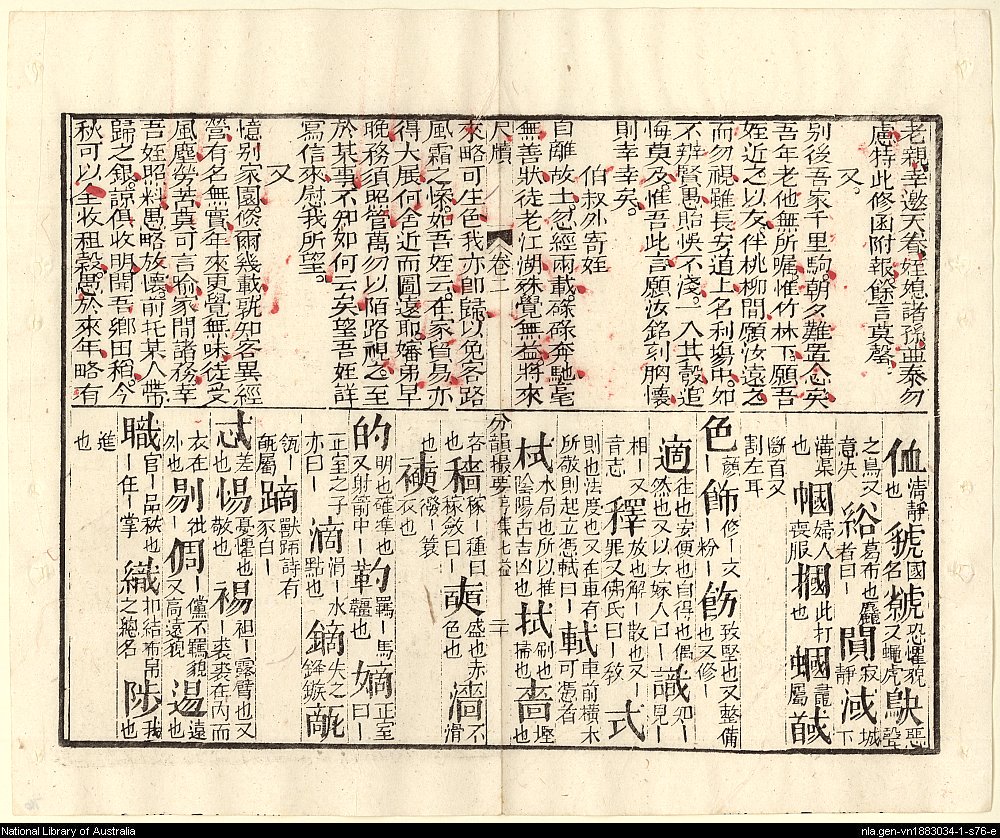 老親幸邀天眷姪媳諸孫亜泰勿
慮特此修函附報餘言莫罄
又
別後吾家千里駒朝夕難置念矣
吾年老他無所囑惟竹林下願吾
姪近之以友伴桃柳間願汝遠之
而勿視雖長安道上名利塲中如
不辨賢愚貽悞不淺一入其彀追
悔莫及惟吾此言願汝銘刻胸懷
則幸幸矣
伯叔外寄姪
自離故土忽經兩載碌碌奔馳毫
無善狀徒老江湖殊覺無益將來
尺牘 卷二
來略可生色我亦卽歸以免客路
風霜之慘如吾姪云在家貿易亦
得大展何舍近而圖遠耶嬸弟早
晚務須照管萬勿以陌路視之至
於某事不知如何云矣望吾姪詳
寫信來慰我所望
又
憶別家園倐爾幾載孰知客異經
營有名無實年來更覺無味徒受
風塵勞苦莫可言喻家間諸務幸
吾姪照料愚略放懷前托某人帶
歸之銀諒俱收明問吾鄉田稻今
秋可以全收租穀愚於來年略有
侐 清靜也 虩 國名 虩 恐懼貌又蠅虎 鴃 惡聲
之鳥又意决 綌 葛布也麤者曰｜ 闃 寂靜 淢 城下
溝渠也 幗 婦人喪服 摑 此打也 蟈 䵷屬 馘
斷首又割左耳
色 顏｜ 飾 修｜文｜粉｜ 飭 致堅也又整備也又修｜
適 往也安便也自得也偶然也又以女嫁人曰｜ 識 知｜見｜
相｜又音志 釋 放也解｜散也又｜罪又佛氏曰｜敎 式
則也法度也又在車有所敬則起立憑軾曰｜ 軾 車前橫木可憑者
栻 木局也所以推陰陽占吉凶也 拭 刷也揩也 嗇 慳也
分韻撮要 卷集七益 三
吝｜也 穡 稼｜種曰稼斂曰｜ 奭 盛也赤色也 濇 不滑
也 襫 襏｜簑衣也
的 明也確準也又射箭中｜ 靮 羈｜馬韁也 嫡 正室曰｜
正室之子亦曰｜ 滴 涓｜水點也 鏑 矢之鋒鏃 甋
瓴｜甎屬 蹢 獸蹄詩有豕白｜
忒 差｜也 惕 憂懼也敬也 裼 袒｜露臂也又｜裘裘在內而
衣在外也 剔 ｜批 倜 ｜儻不羈貌又高遠貌 逷 遠也
職 官｜品秩也｜任｜掌 織 扣結布帛之總名 陟 我也
進也
National Library of Australia
nla.gen-vn1883034-1-s76-e